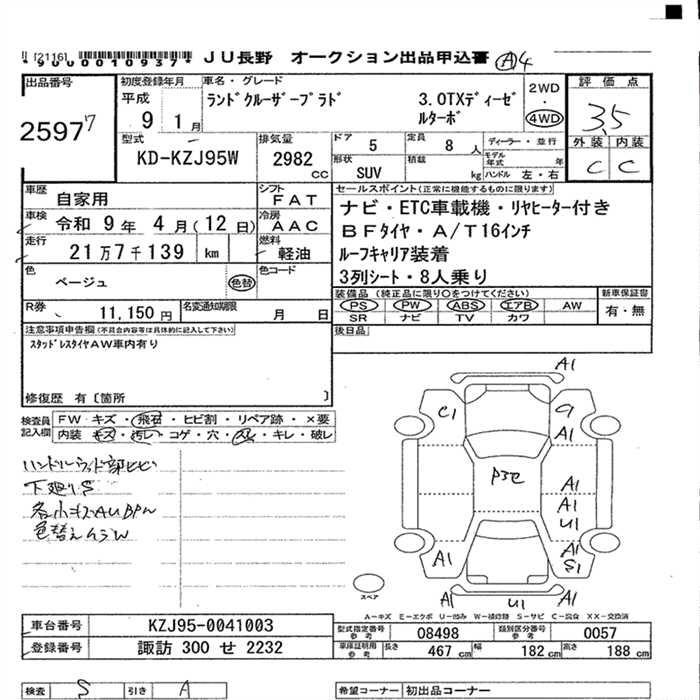 [2116]
*9000010937*
JU長野 オークション出品申込書 Ⓐ4
出品番号
2597 7
初度登録年月
平成
9 1月
車名・グレード
ランドクルーザープラド 3.0TXディーゼルターボ
2WD
・
4WD
評価点
3.5
外装 内装
C C
型式
KD-KZJ95W
排気量
2982 CC
ドア 5
定員 8 人
形状 SUV
積載 kg
ディーラー・並行
モデル年式 年
ハンドル 左・右
車歴
自家用
シフト
FAT
車検
令和 9年 4月(12日)
冷房
AAC
走行
21万7千139 km
燃料
軽油
色
ベージュ
色替
色コード
セールスポイント(正常に機能するものに限ります)
ナビ・ETC車載機・リヤヒーター付き
BFタイヤ・A/T16インチ
ルーフキャリア装着
3列シート・8人乗り
R券 11,150円
名変通知期限 月 日
装備品 (純正品に限り○をつけてください)
PS PW ABS エアB AW
SR ナビ TV カワ
新車保証書
有・無
後日品
注意事項申告欄(不具合内容等は具体的に記入して下さい)
スタッドレスタイヤAW車内有り
修復歴 有〔箇所 〕
検査員記入欄
FW キズ・飛石・ヒビ割・リペア跡・×要
内装 キズ・汚レ・コゲ・穴・スレ・キレ・破レ
ハンドルウッド部ヒビ
下廻りS
色替えムラW
A1
C1
A1
A1
A1
U1
A1
S1
A1
A1
U1
A1
スペア
A－キズ E－エクボ U－凹み W－補修跡 S－サビ C－腐食 XX－交換済
車台番号 KZJ95-0041003
登録番号 諏訪 300 せ 2232
型式指定番号 参考 08498
類別区分番号 参考 0057
車庫証明用 参考 長さ 467 cm 幅 182 cm 高さ 188 cm
検査 S
引き A
希望コーナー 初出品コーナー